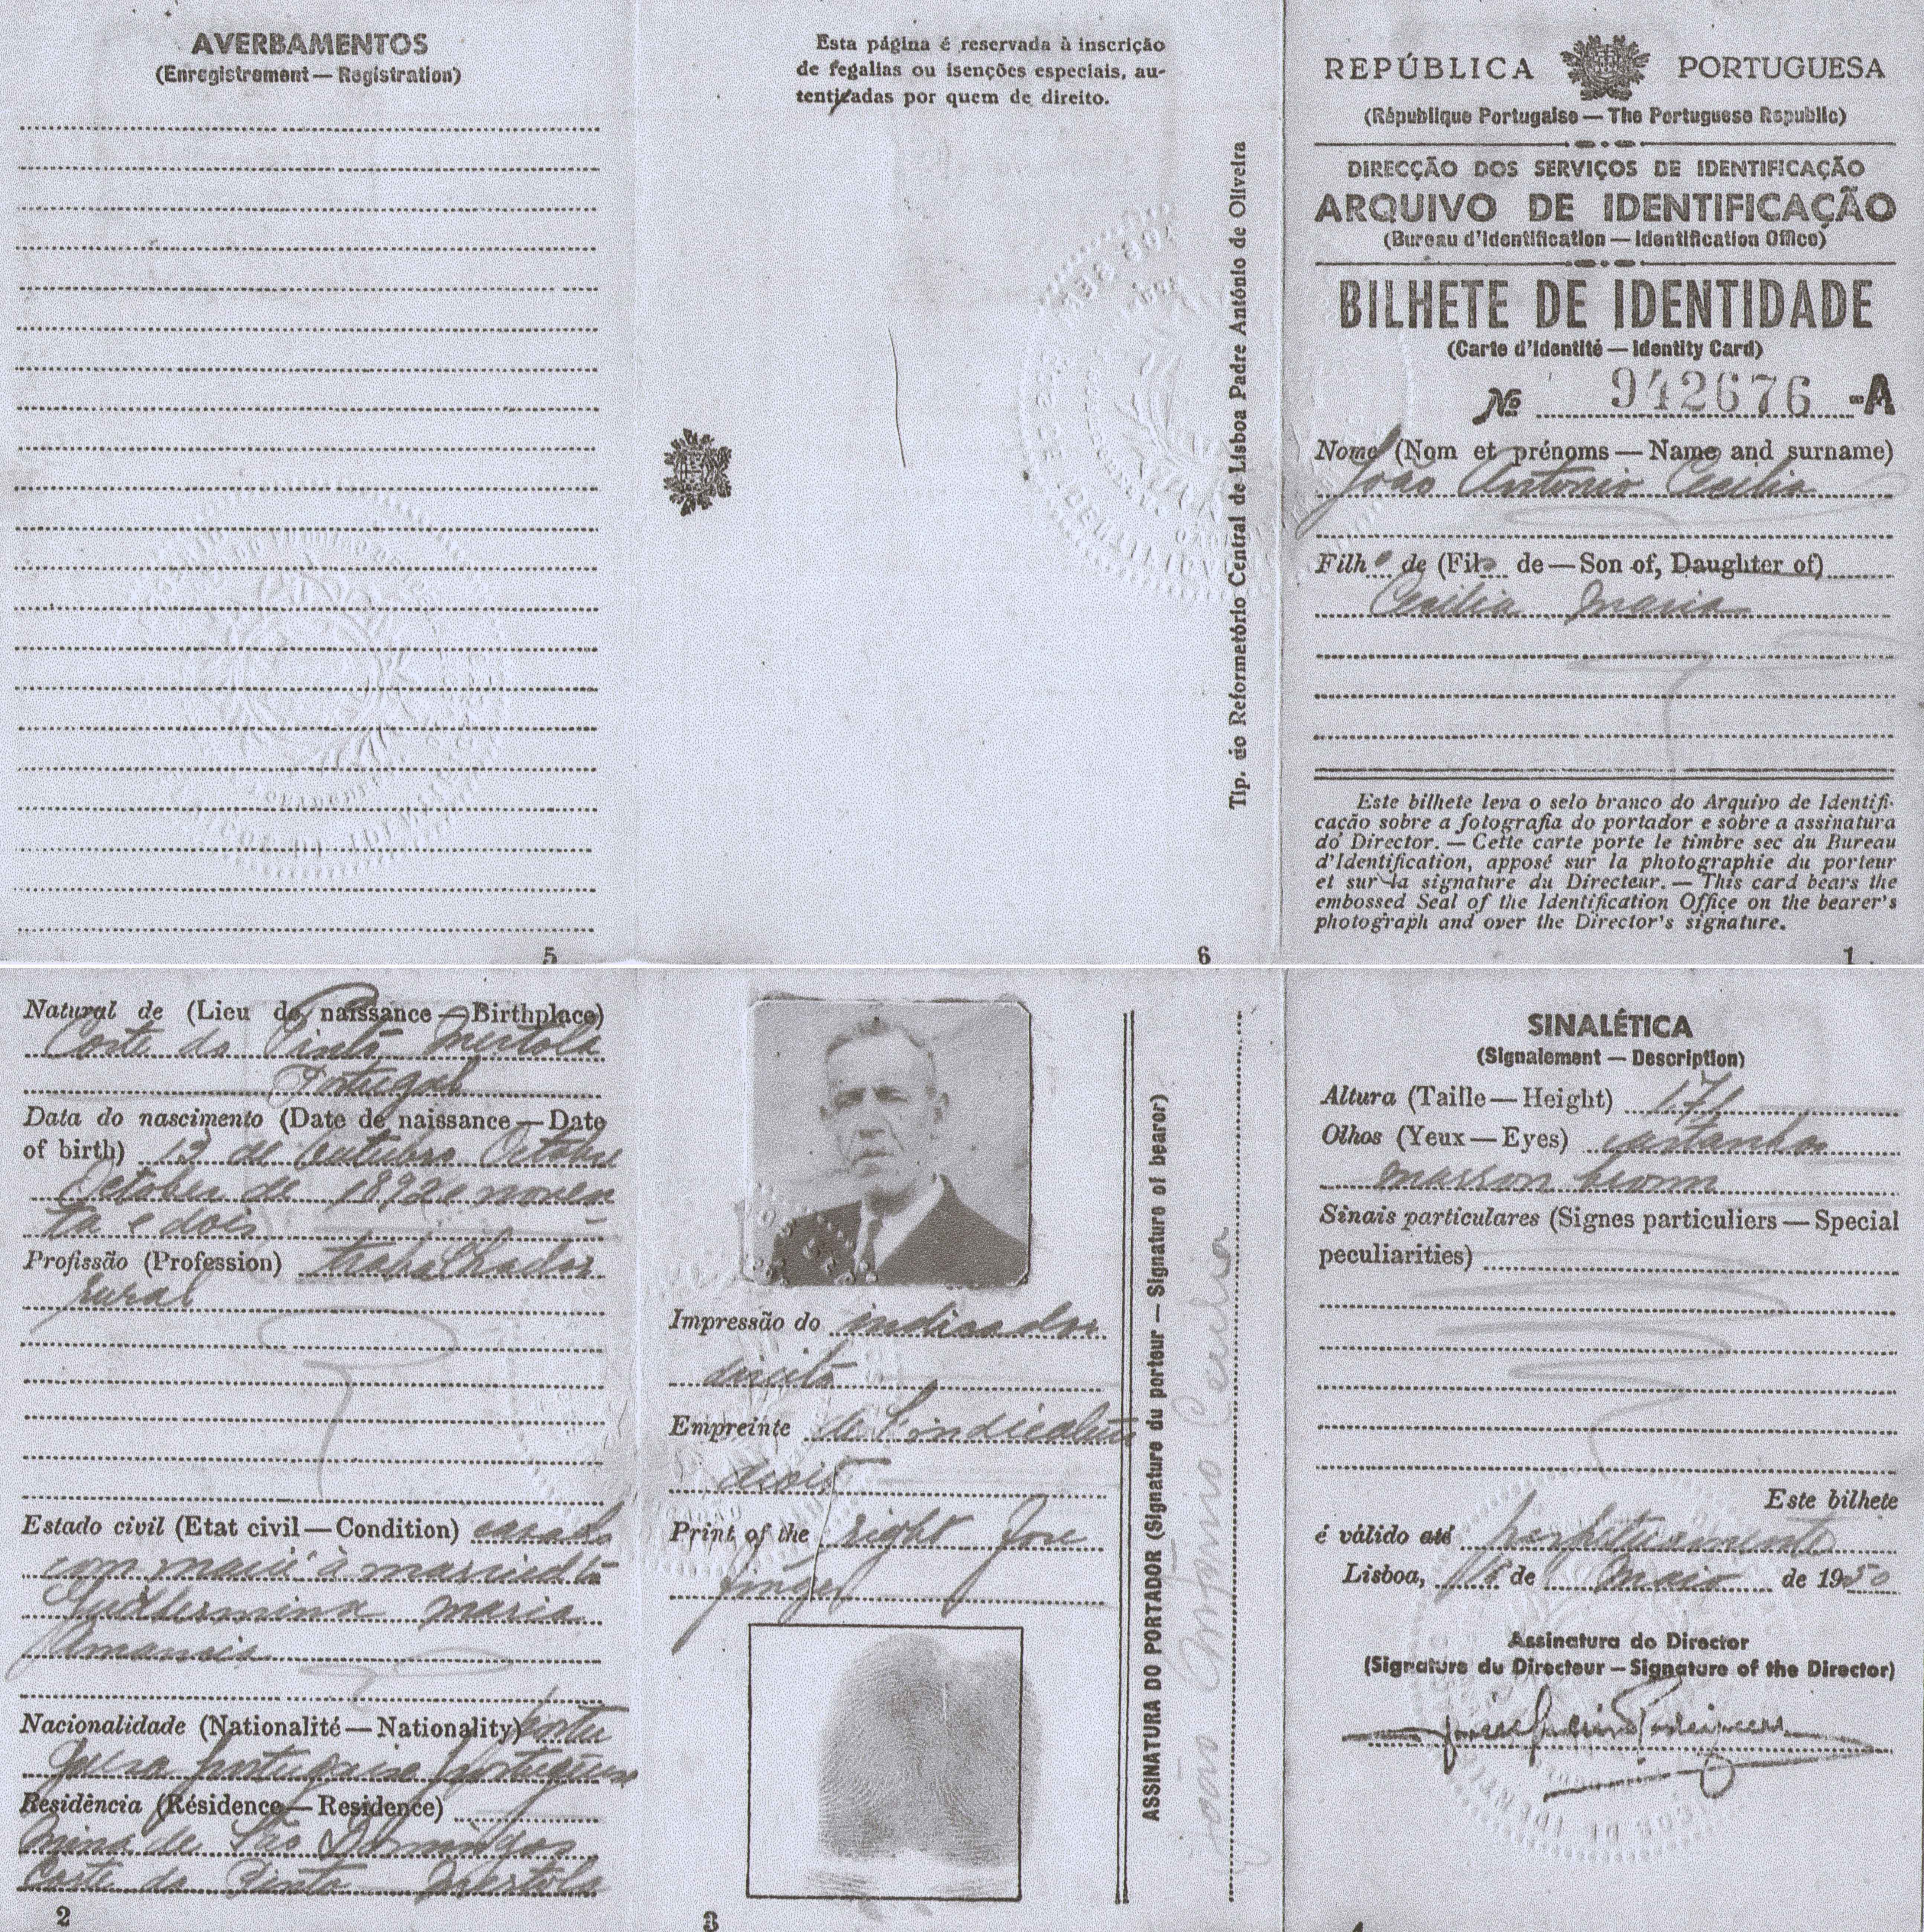 AVERBAMENTOS
(Enregistrement — Registration)
5
Esta página é reservada à inscrição
de regalias ou isenções especiais, au-
tenticadas por quem de direito.
Tip. do Reformatório Central de Lisboa Padre António de Oliveira
6
REPÚBLICA PORTUGUESA
(République Portugaise — The Portuguese Republic)
DIRECÇÃO DOS SERVIÇOS DE IDENTIFICAÇÃO
ARQUIVO DE IDENTIFICAÇÃO
(Bureau d'Identification — Identification Office)
BILHETE DE IDENTIDADE
(Carte d'Identité — Identity Card)
Nº 942676 -A
Nome (Nom et prénoms — Name and surname)
João Antonio Cecilio
Filho de (Fils de — Son of, Daughter of)
Cecilia Maria
Este bilhete leva o selo branco do Arquivo de Identifi-
cação sobre a fotografia do portador e sobre a assinatura
do Director. — Cette carte porte le timbre sec du Bureau
d'Identification, apposé sur la photographie du porteur
et sur la signature du Directeur. — This card bears the
embossed Seal of the Identification Office on the bearer's
photograph and over the Director's signature.
1
Natural de (Lieu de naissance — Birthplace)
Corte do Pinto Mertola
Portugal
Data do nascimento (Date de naissance — Date
of birth) 13 de Outubro Octobre
October de 1892 e noven
ta e dois
Profissão (Profession) trabalhador
rural
Estado civil (Etat civil — Condition) casado
com marié à married to
Guilhermina Maria
Amancia
Nacionalidade (Nationalité — Nationality) portu
guesa portugaise portuguese
Residência (Résidence — Residence)
Mina de São Domingos
Corte do Pinto Mertola
2
Impressão do indicador
direito
Empreinte de l'indicateur
droit
Print of the right fore
finger
ASSINATURA DO PORTADOR (Signature du porteur — Signature of bearer)
João António Cecilio
3
SINALÉTICA
(Signalement — Description)
Altura (Taille — Height) 171
Olhos (Yeux — Eyes) castanhos
marron brown
Sinais particulares (Signes particuliers — Special
peculiarities)
Este bilhete
é válido até perpetuamente
Lisboa, 16 de Maio de 1950
Assinatura do Director
(Signature du Directeur — Signature of the Director)